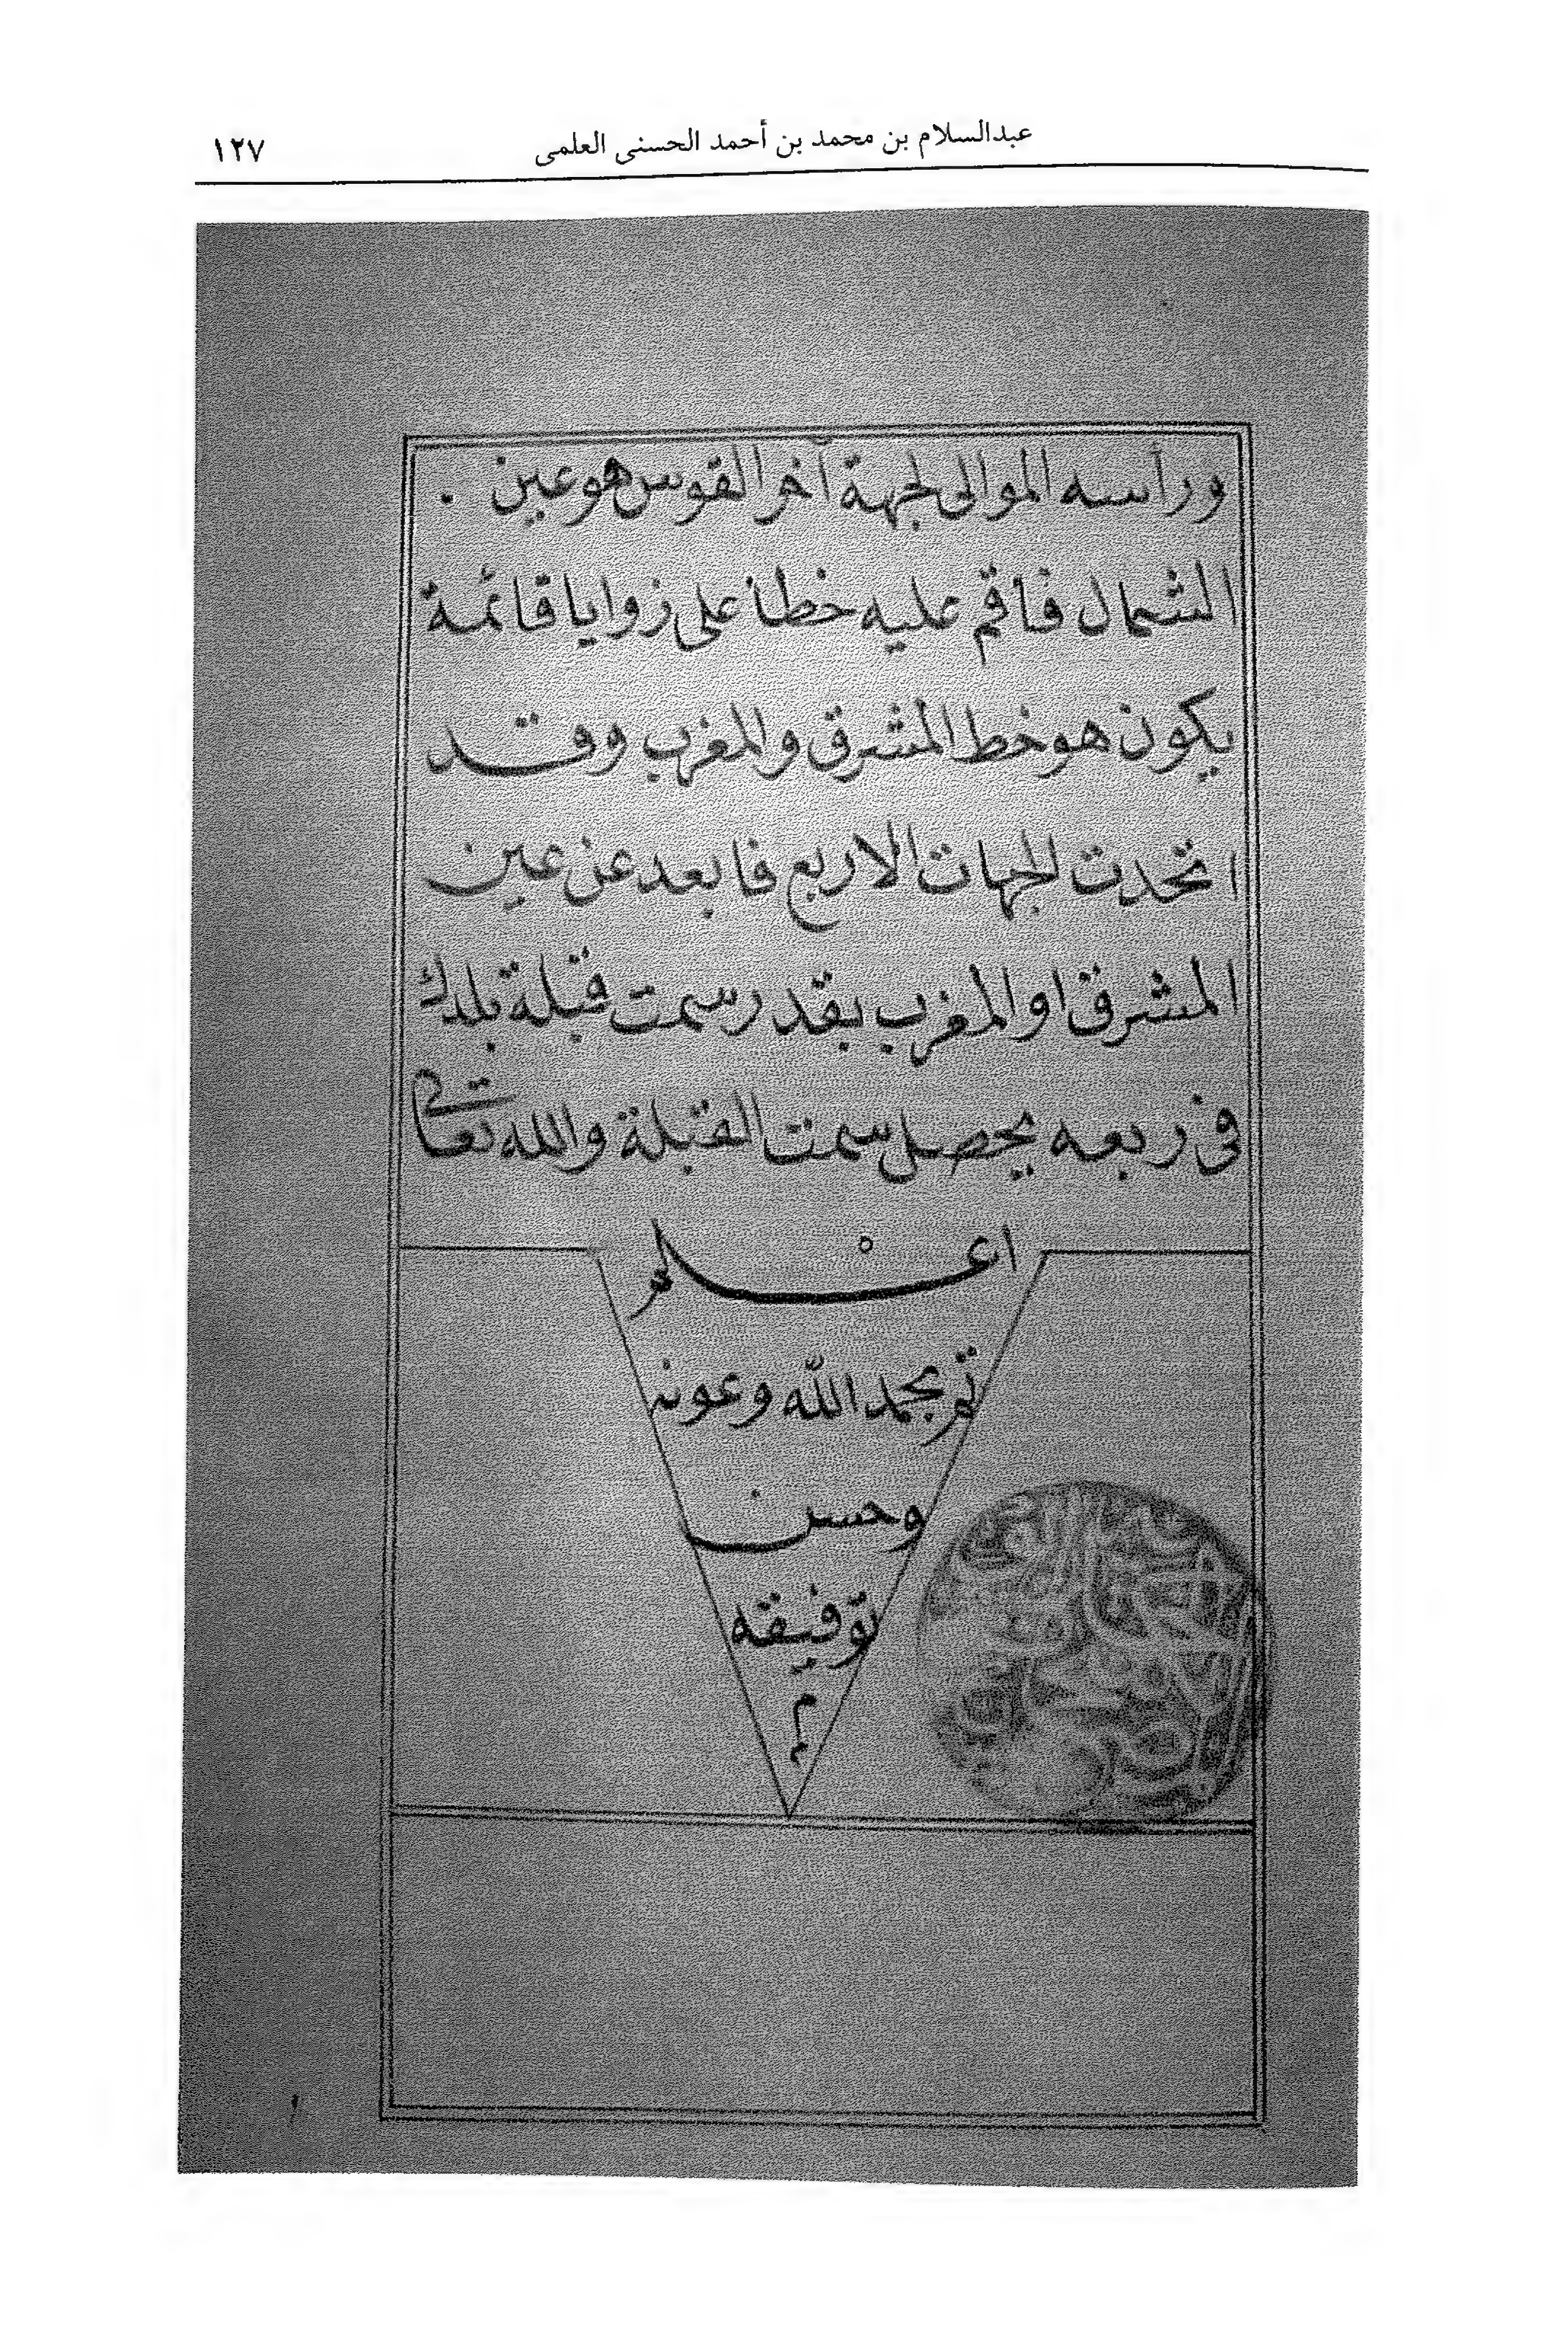 عبدالسلام بن محمد بن أحمد الحسنى العلمى ١٢٧
ورأسه الموالى لجهة آخر القوس هو عين .
الشمال فاقم عليه خطا على زوايا قائمة
يكون هو خط المشرق والمغرب وقد
اتحدت الجهات الاربع فابعد عن عين
المشرق او المغرب بقدر سمت قبلة بلدك
فى ربعه يحصل سمت القبلة والله تعالى
اعلم
تم بحمد الله وعونه
وحسن
توفيقه
م